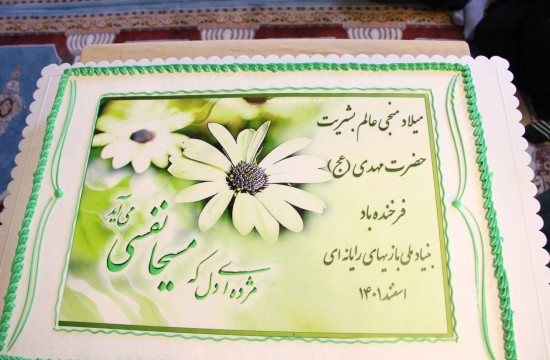 میلاد منجی عالم بشریت
حضرت مهدی (عج)
فرخنده باد
بنیاد ملی بازیهای رایانه ای
اسفند ۱۴۰۱
مژده ای دل که
مسیحا نفسی
می آید